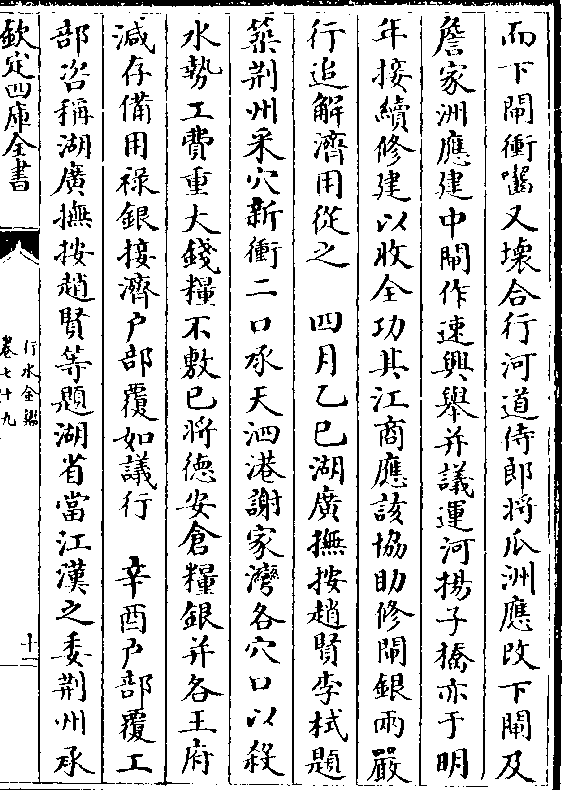 而下閘衝囓又壞合行河道侍郎將瓜洲應改下閘及
詹家洲應建中閘作速興舉并議運河揚子橋亦于明
年接續修建以收全功其江商應該協助修閘銀兩嚴
行追解濟用從之　四月乙巳湖廣撫按趙賢李栻題
築荆州采穴新衝二口承天泗港謝家灣各穴口以殺
水勢工費重大錢糧不敷已將德安倉糧銀并各王府
減存備用祿銀接濟户部覆如議行　辛酉户部覆工
部咨稱湖廣撫按趙賢等題湖省當江漢之委荆州承
欽定四庫全書
行水金鑑
卷七十九
十一